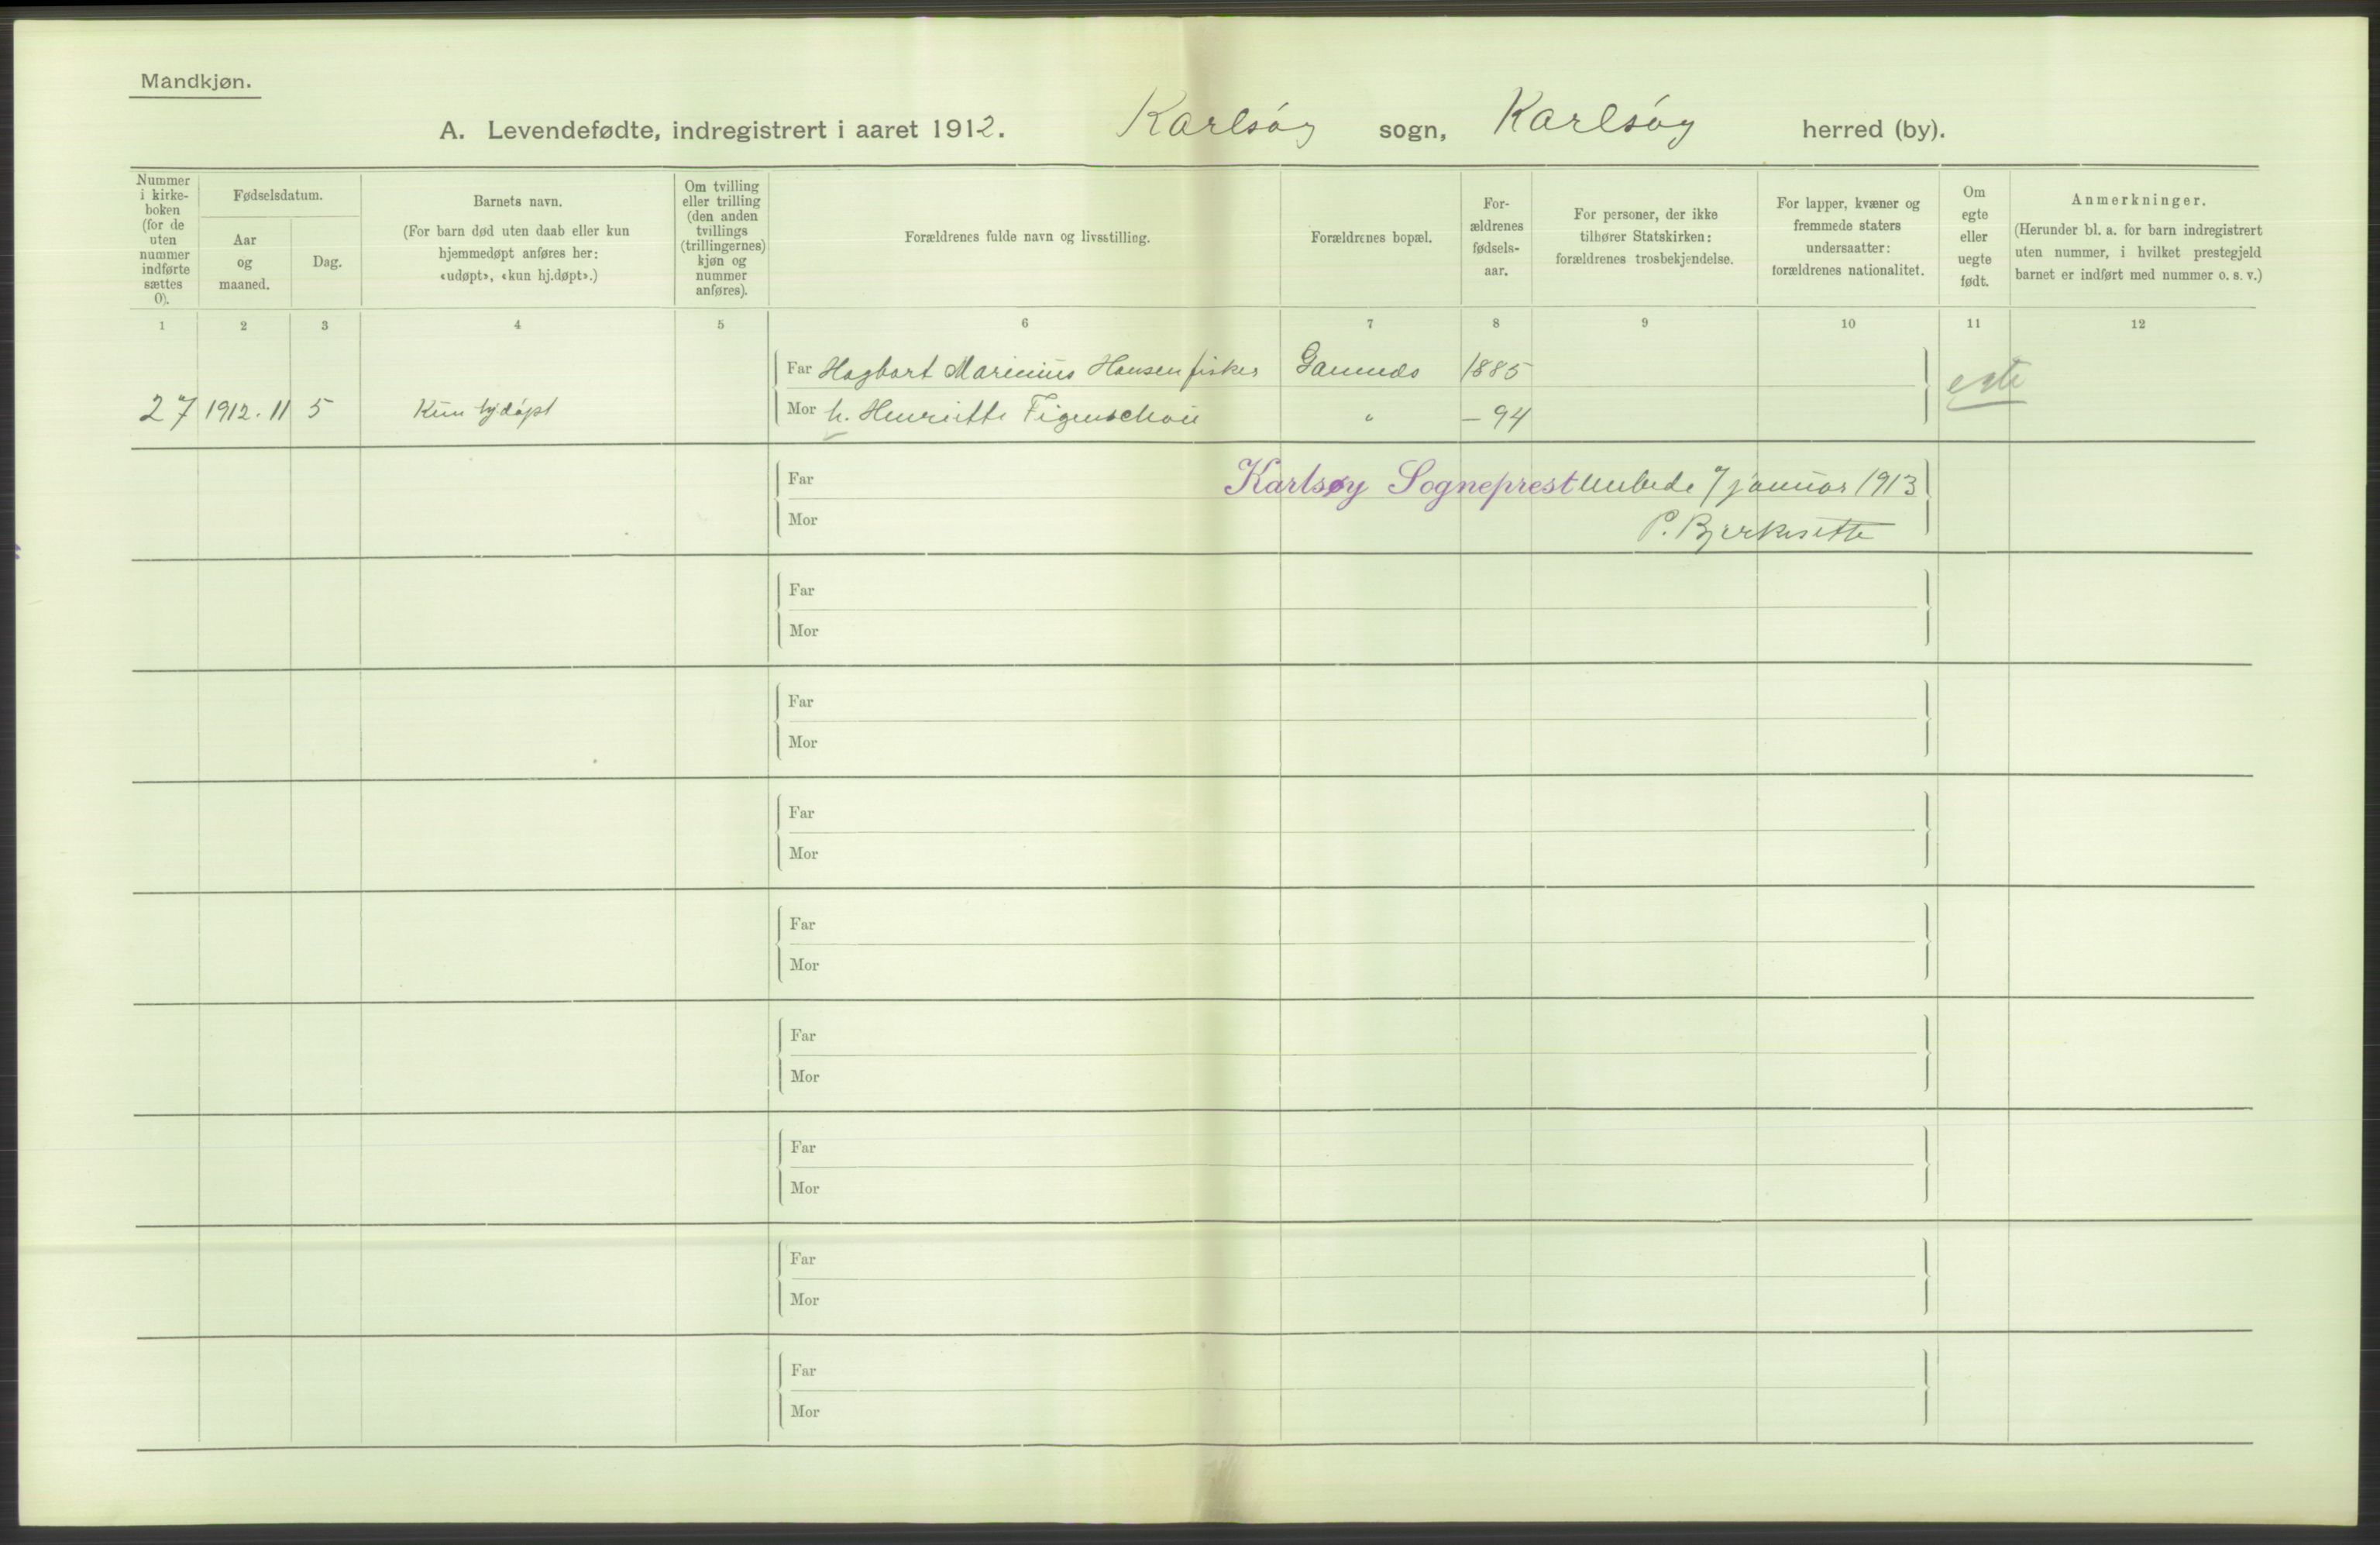 Mandkjøn.
A. Levendefødte, indregistrert i aaret 1912. Karlsøy sogn, Karlsøy herred (by).
Nummer
i kirke-
boken
(for de
uten
nummer
indførte
sættes
0).
Fødselsdatum.
Aar
og
maaned.
Dag.
Barnets navn.
(For barn død uten daab eller kun
hjemmedøpt anføres her:
«udøpt», «kun hj.døpt».)
Om tvilling
eller trilling
(den anden
tvillings
(trillingernes)
kjøn og
nummer
anføres).
Forældrenes fulde navn og livsstilling.
Forældrenes bopæl.
For-
ældrenes
fødsels-
aar.
For personer, der ikke
tilhører Statskirken:
forældrenes trosbekjendelse.
For lapper, kvæner og
fremmede staters
undersaatter:
forældrenes nationalitet.
Om
egte
eller
uegte
født.
Anmerkninger.
(Herunder bl. a. for barn indregistrert
uten nummer, i hvilket prestegjeld
barnet er indført med nummer o. s. v.)
1 2 3 4 5 6 7 8 9 10 11 12
Far Hagbart Marinius Hansen fisker 1885 egte
27 1912. 11 5 Kun hj.døpt Mor h. Henriette Figenschou " – 94
Far Karlsøy Sogneprestembede 7 januar 1913
Mor P. Bjerkesette
Far
Mor
Far
Mor
Far
Mor
Far
Mor
Far
Mor
Far
Mor
Far
Mor
Far
Mor